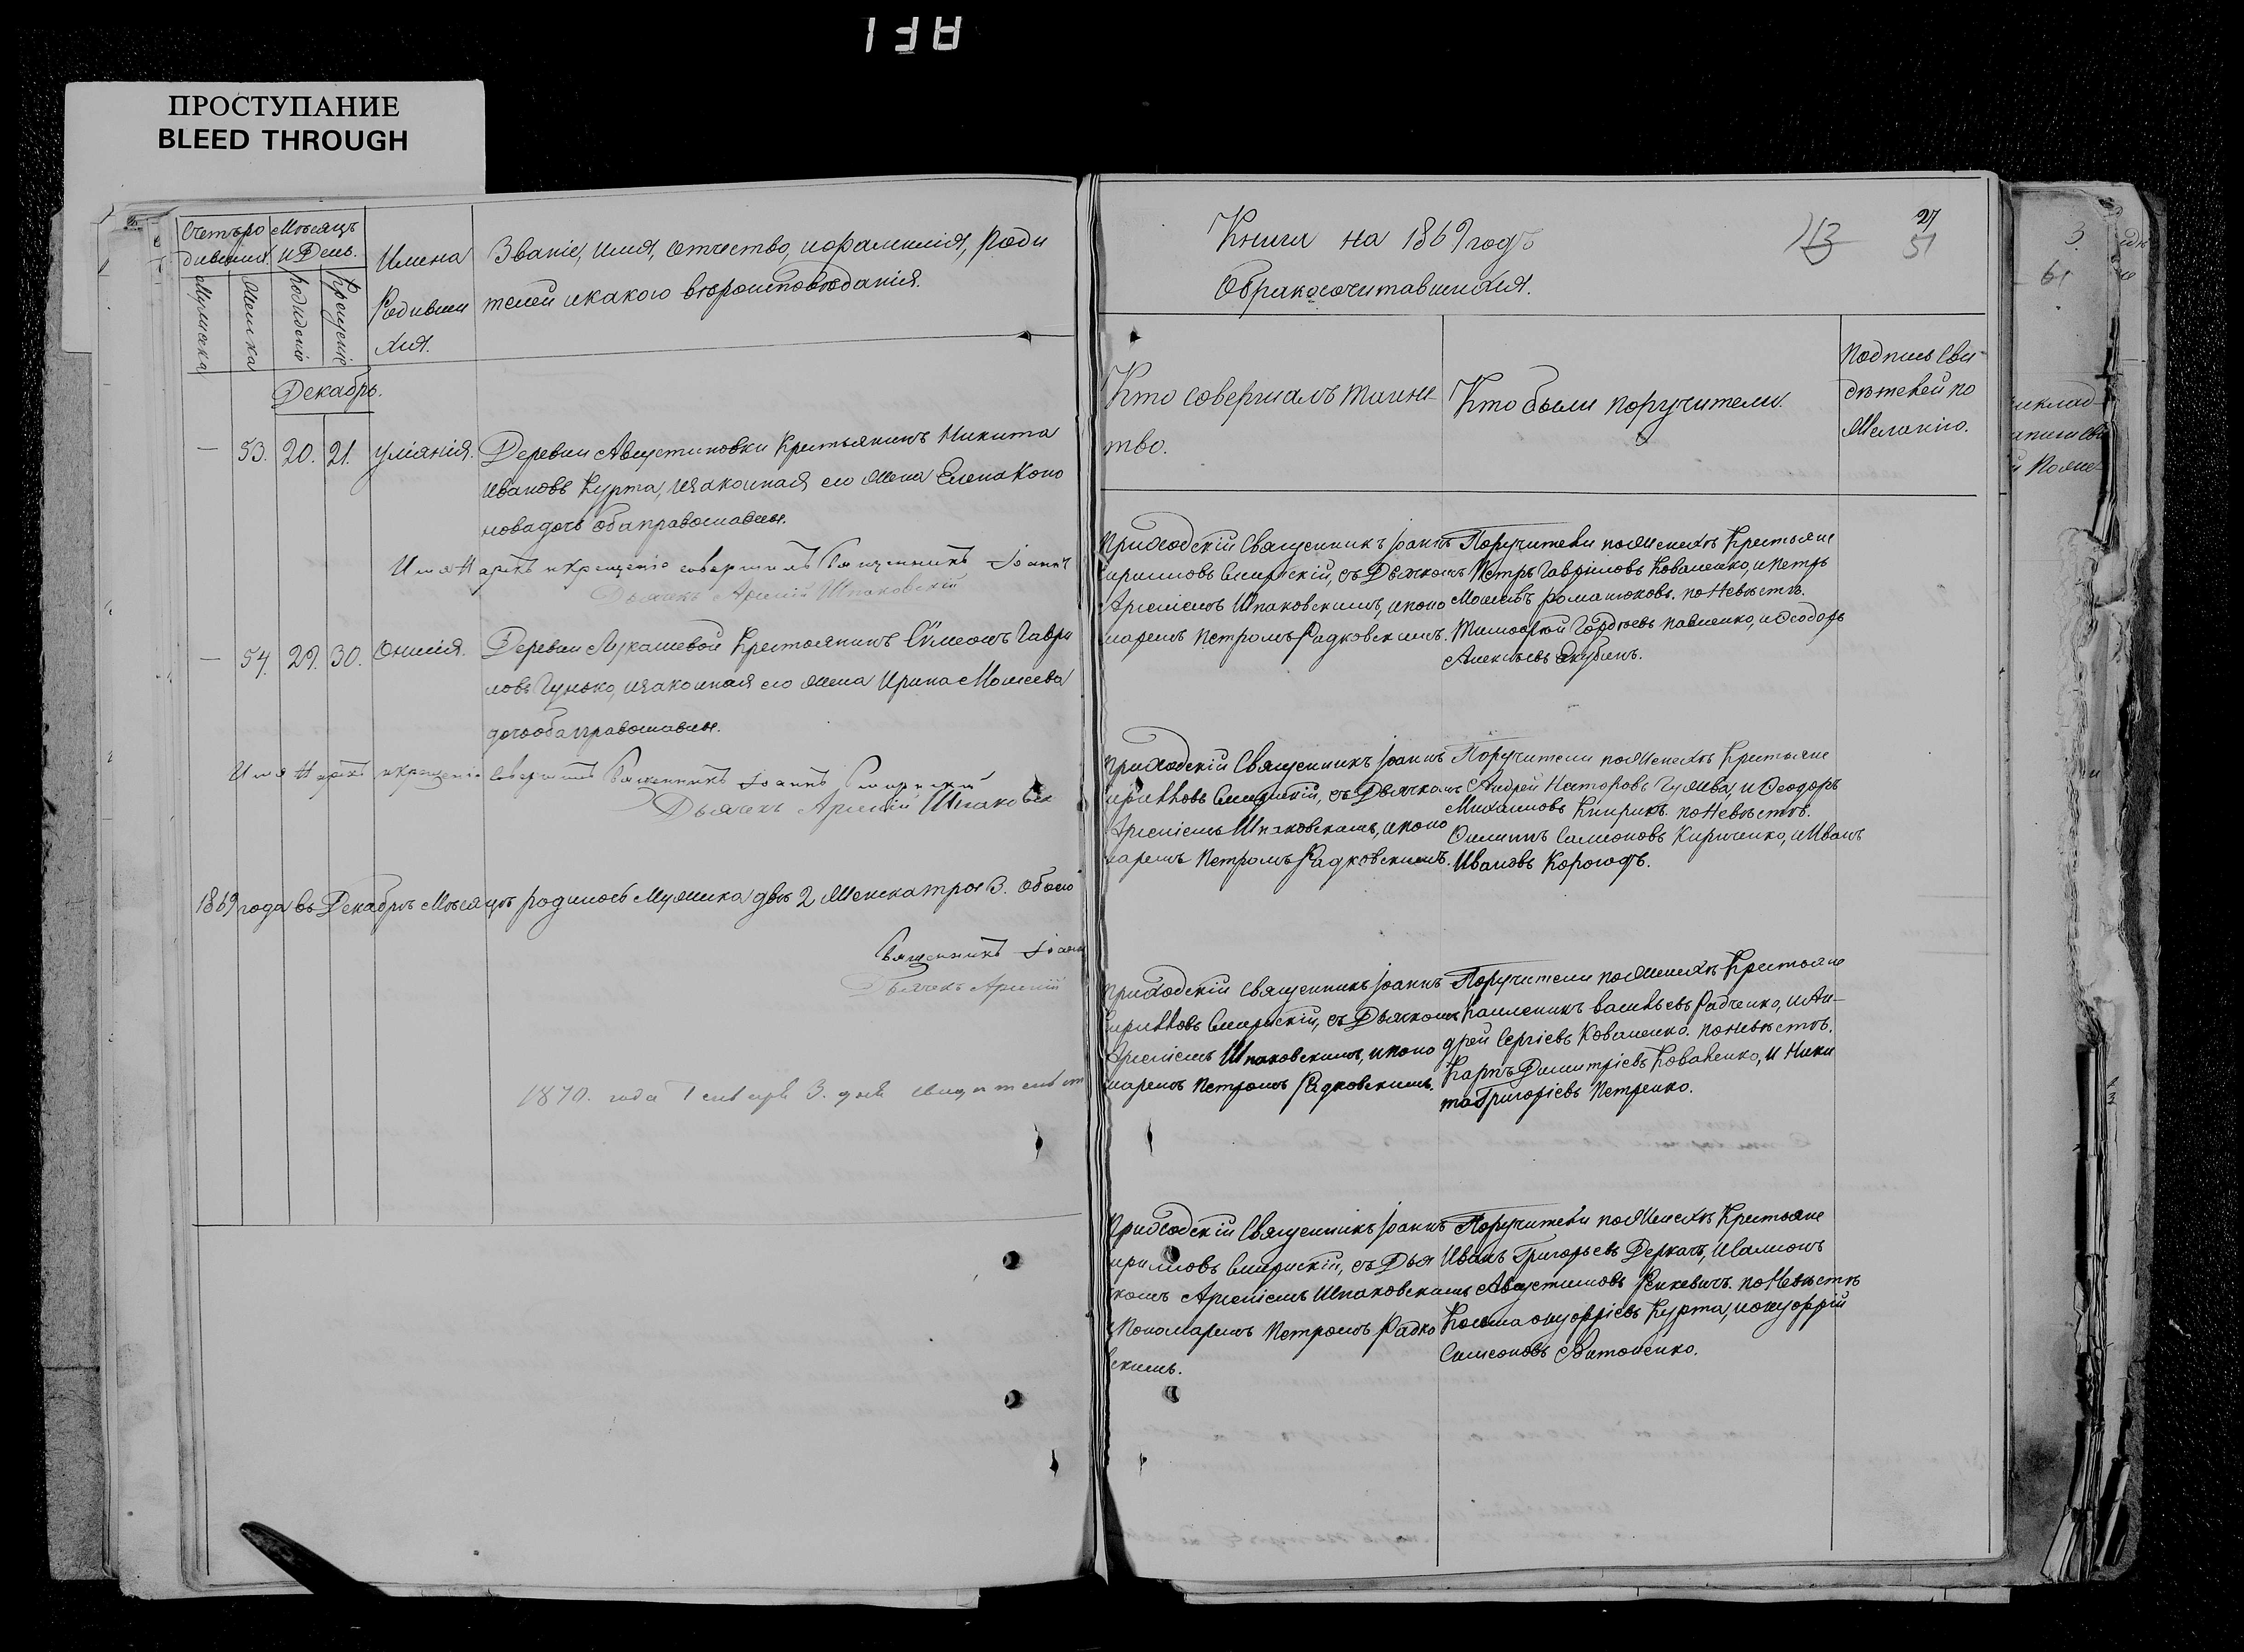 ПРОСТУПАНИЕ
BLEED THROUGH
Счетъ ро
дившихся
Мѣсяцъ
и День.
Мужеска
Женска
Рожденіе
Крещеніе
Имена
Родивши
хся.
Званіе, имя, отчество, и фамилія, роди
телей и какого вѣроисповѣданія.
Декабрь.
— 53. 20. 21. Уліянія. Деревни Августиновки Крестьянинъ Никита
Ивановъ Курта, и законная его жена Елена Коно
нова дочь оба православные.
Имя Нарекъ и крещеніе совершилъ Священникъ Іоаннъ
Дьячекъ Арсеній Шпаковскій
— 54. 29. 30. Онисія. Деревни Лукашевой Крестьянинъ Симеонъ Гаври
ловъ Гунько, и законная его жена Ирина Моисеева
дочь оба православные.
Имя Нарекъ и крещеніе Совершилъ Священникъ Іоаннъ
Дьячекъ Арсеній Шпаковск
1869 года въ Декабрѣ Мѣсяцѣ родилось Мужика двѣ 2 Женска трое 3. обоего
Священникъ Іоанн
Дьячекъ Арсеній
1870. года Генваря 3. дня
Книга на 1869 годъ
27
113
51
О бракосочитавшихся.
Кто совершалъ таин-
тво.
Кто были поручители.
Подпись Сви-
дѣтелей по
Желанію.
Приходскій Священникъ Іоаннъ
Кирилловъ, съ Дьячкомъ
Арсеніемъ Шпаковскимъ, и поно
маремъ Петромъ Радковскимъ.
Поручители по Женихѣ Крестьяне
Петръ Гавриловъ Коваленко, и Петръ
Моисеевъ Романюковъ. по Невѣстѣ.
Тимофей Гордѣевъ Павленко, и Ѳеодоръ
Алексѣевъ
Приходскій Священникъ Іоаннъ
Кирилловъ, съ Дьячкомъ
Арсеніемъ Шпаковскимъ, и поно
маремъ Петромъ Радковскимъ.
Поручители по Женихѣ Крестьяне
Андрей Несторовъ, и Ѳеодоръ
Михаиловъ Книрикъ. по Невѣстѣ.
Филиппъ Самсоновъ Кириченко, и Иванъ
Ивановъ Корогодъ.
Приходскій Священникъ Іоаннъ
Кирилловъ, съ Дьячкомъ
Арсеніемъ Шпаковскимъ, и поно
маремъ Петромъ Радковскимъ.
Поручители по Женихѣ Крестьяне
Каленикъ Васильевъ Радченко, и Ан-
дрей Сергіевъ Коваленко. по Невѣстѣ.
Карпъ Димитріевъ Коваленко, и Ники
та Григоріевъ Петренко.
Приходскій Священникъ Іоаннъ
Кирилловъ, съ Дья
комъ Арсеніемъ Шпаковскимъ
и Пономаремъ Петромъ Радко
вскимъ.
Поручители по Женихѣ Крестьяне
Иванъ Григорьевъ Деркачъ, и Самсонъ
Августиновъ. по Невѣстѣ
Косма Онуфріевъ Курта, и Онуфрій
Симеоновъ Витоненко.
3.
61